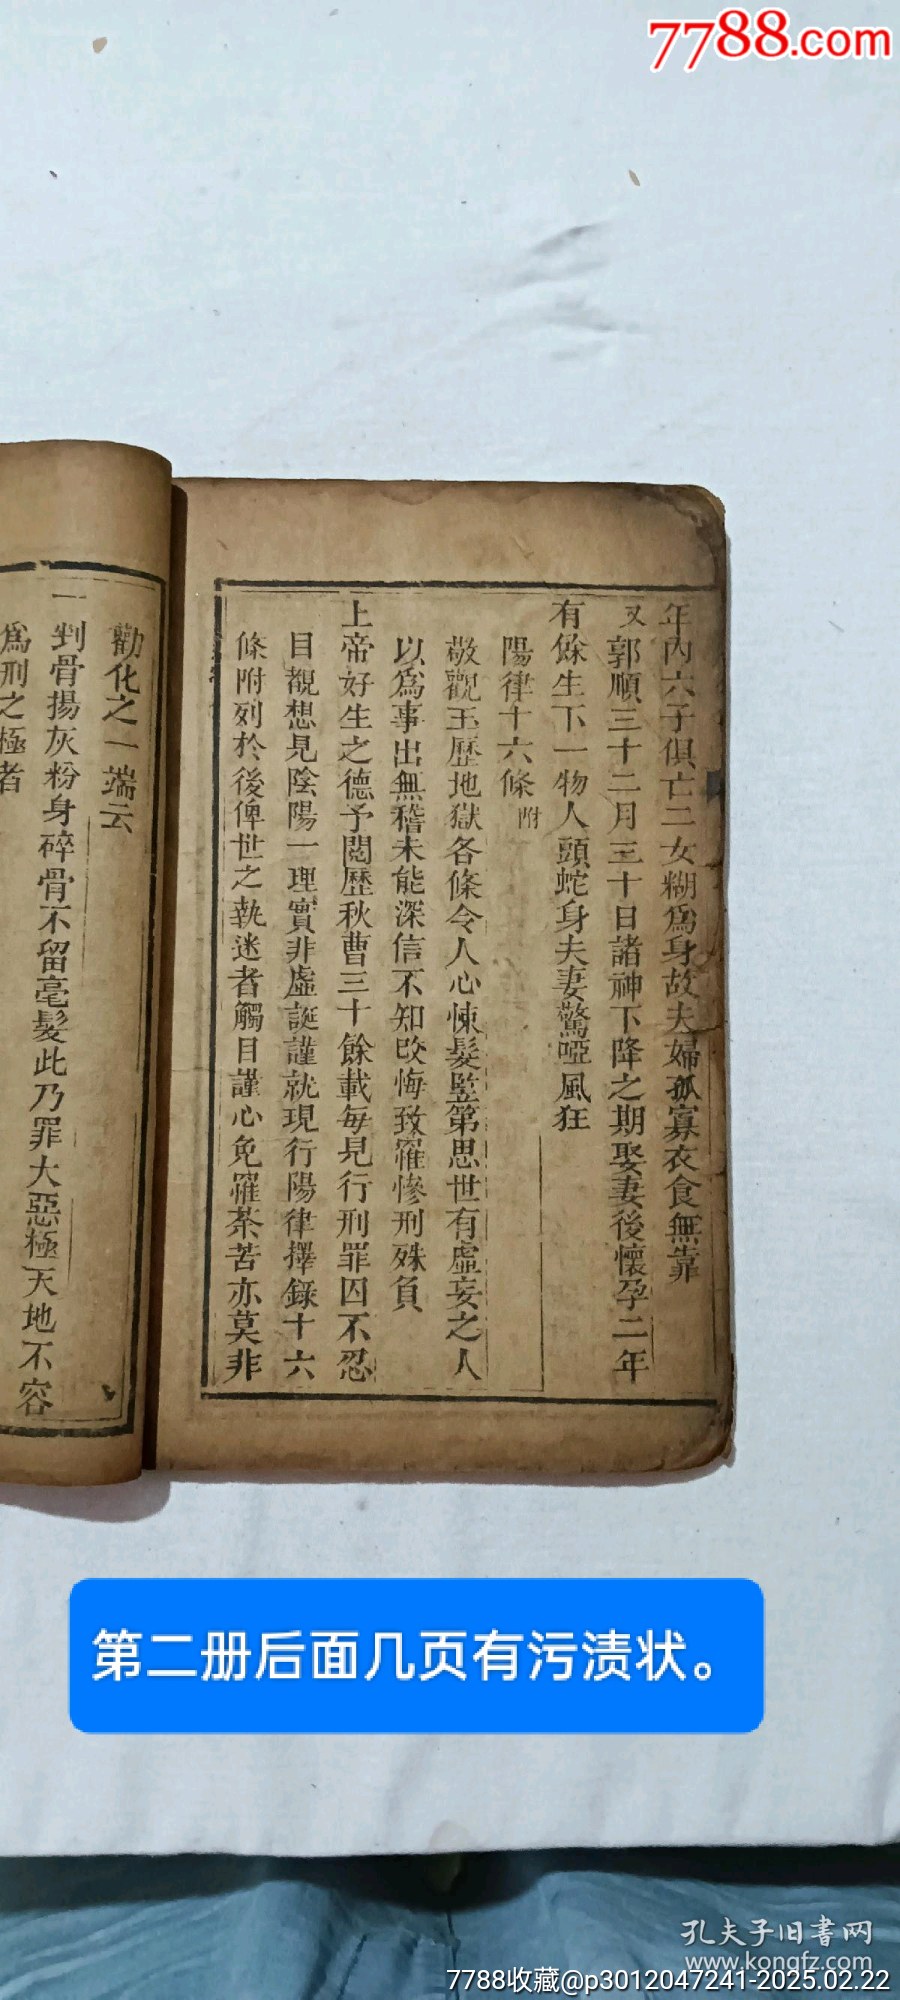 7788.com
年內六子俱亡二女糊爲身故夫婦孤寡衣食無靠
又郭順三十二月三十日諸神下降之期娶妻後懷孕二年
有餘生下一物人頭蛇身夫妻驚啞風狂
陽律十六條附
敬觀玉歷地獄各條令人心悚髮竪第思世有虛妄之人
以爲事出無稽未能深信不知改悔致罹慘刑殊負
上帝好生之德予閱歷秋曹三十餘載每見行刑罪囚不忍
目覩想見陰陽一理實非虛誕謹就現行陽律擇錄十六
條附列於後俾世之執迷者觸目謹心免罹荼苦亦莫非
勸化之一端云
一剉骨揚灰粉身碎骨不留毫髮此乃罪大惡極天地不容
爲刑之極者
第二册后面几页有污渍状。
孔夫子旧书网
www.kongfz.com
7788收藏@p3012047241-2025.02.22